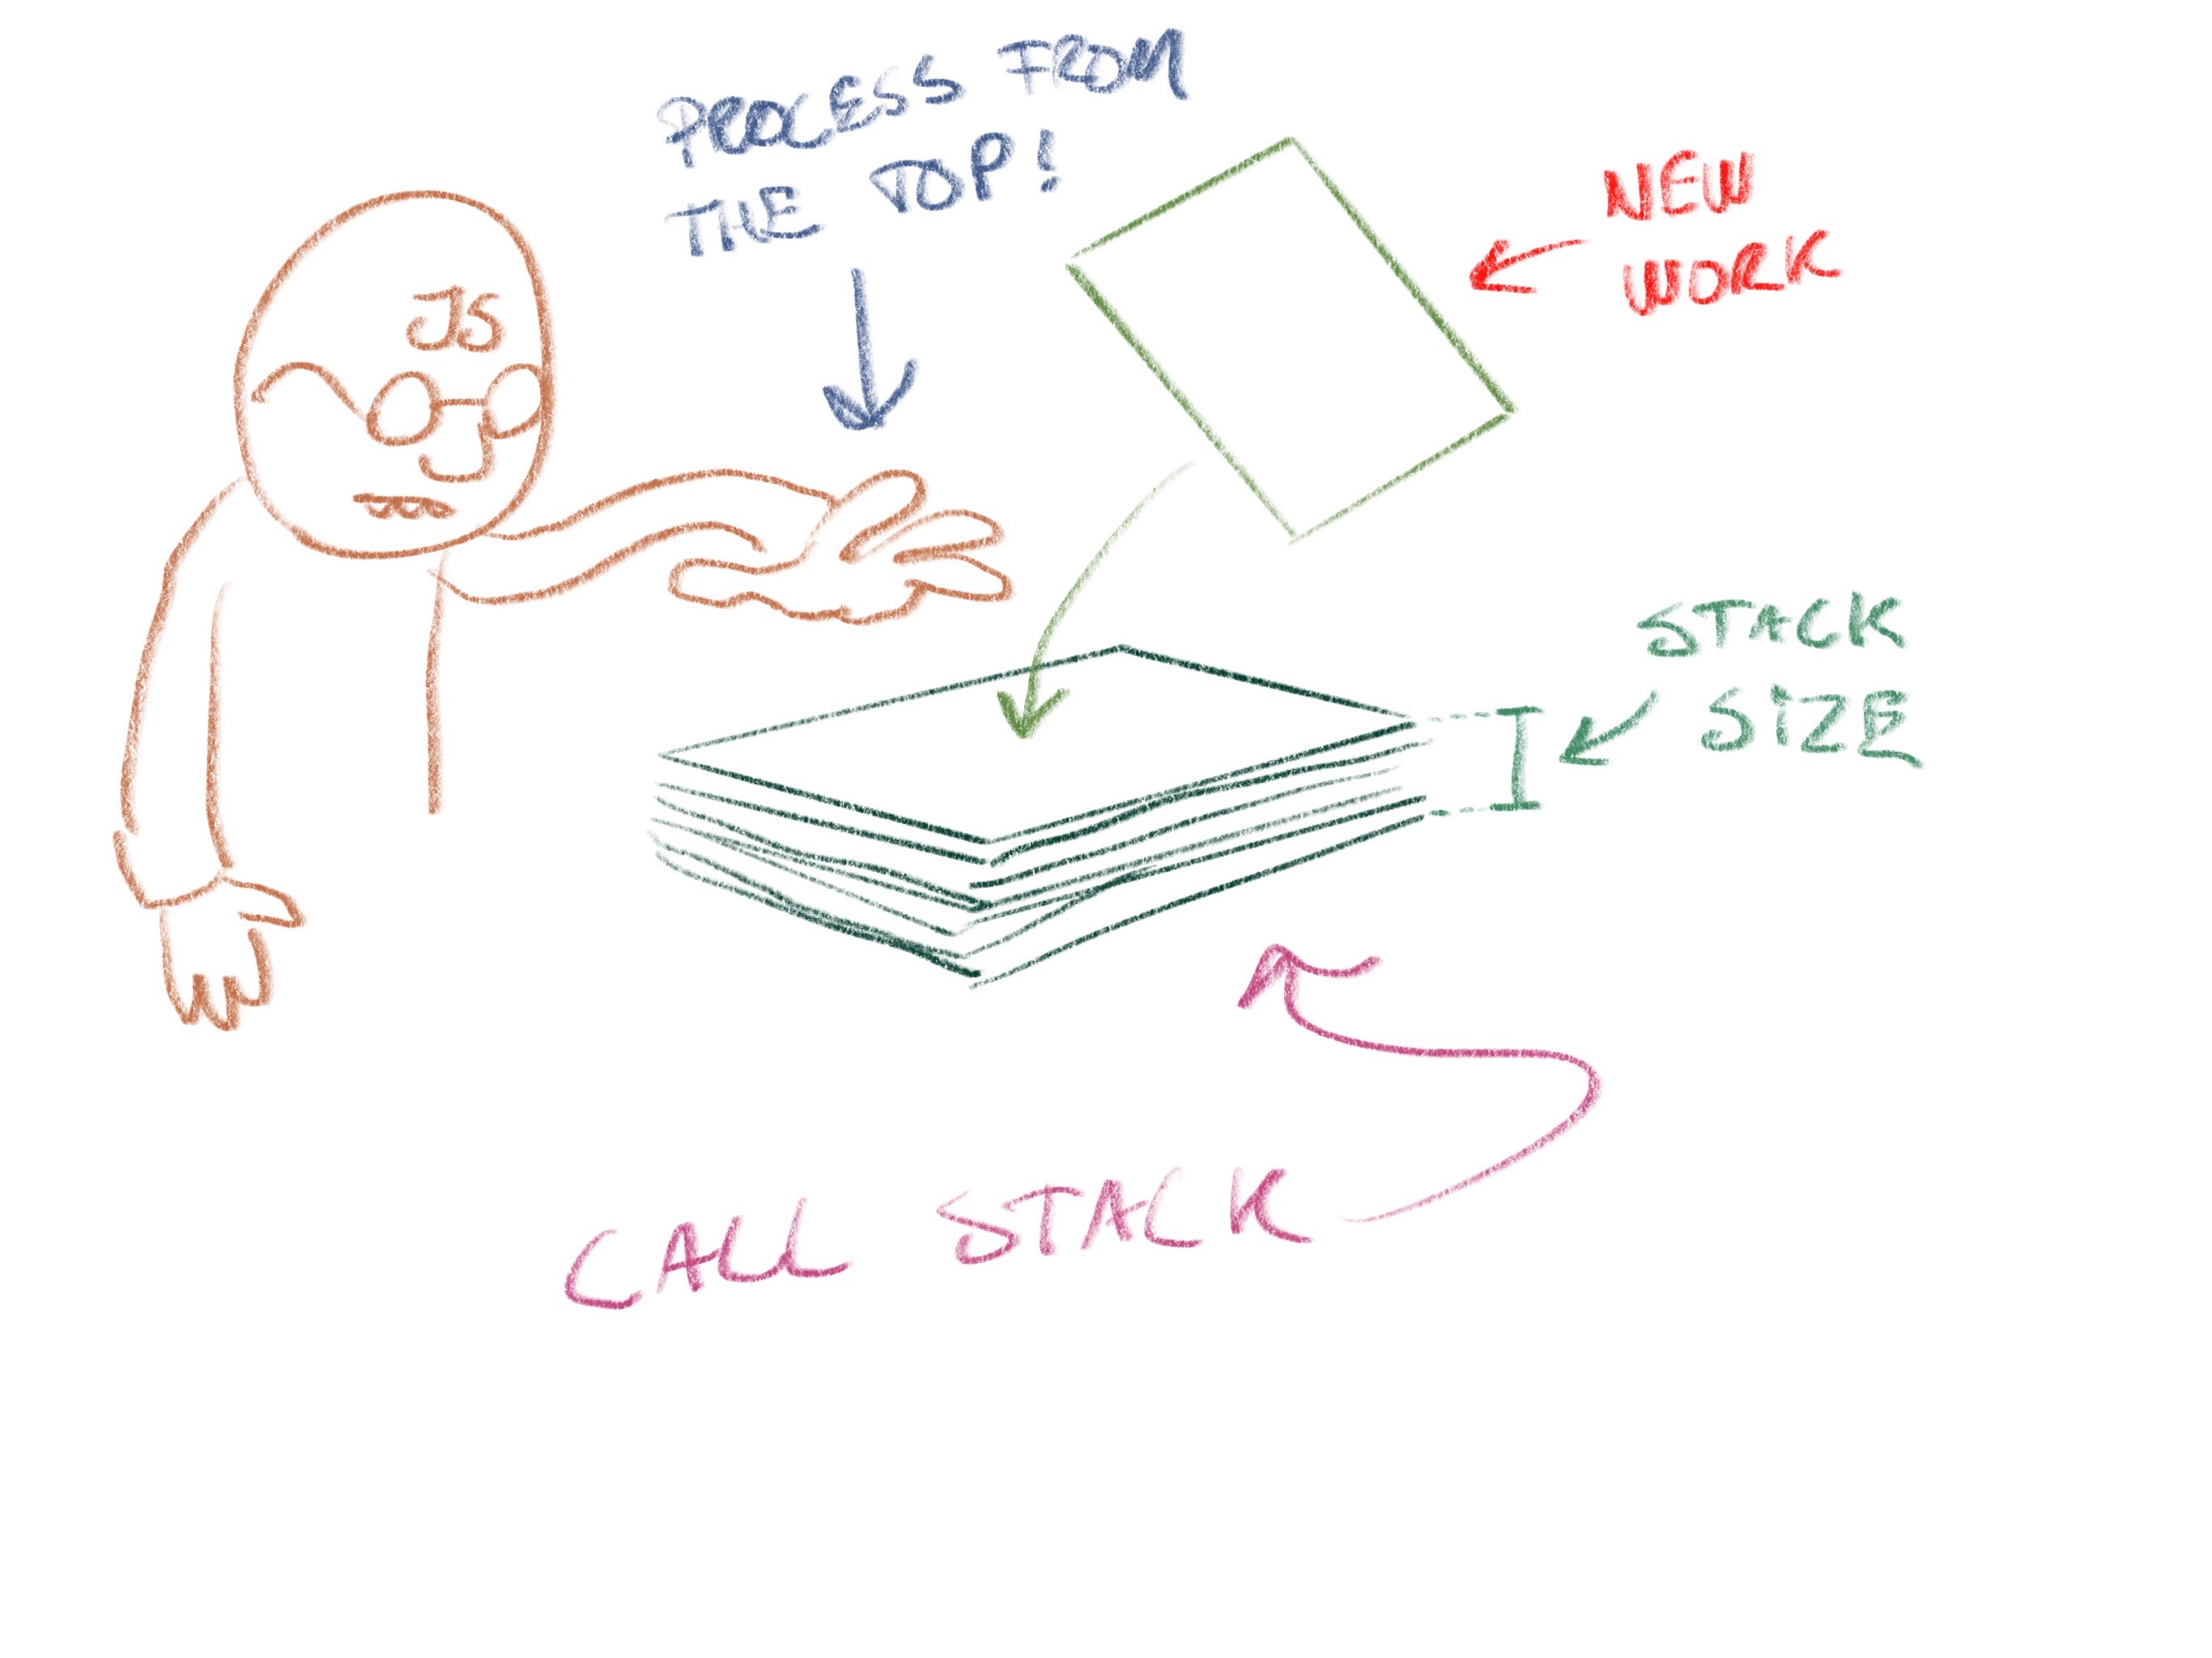 PROCESS FROM
THE TOP!
NEW
WORK
JS
STACK
SIZE
CALL STACK